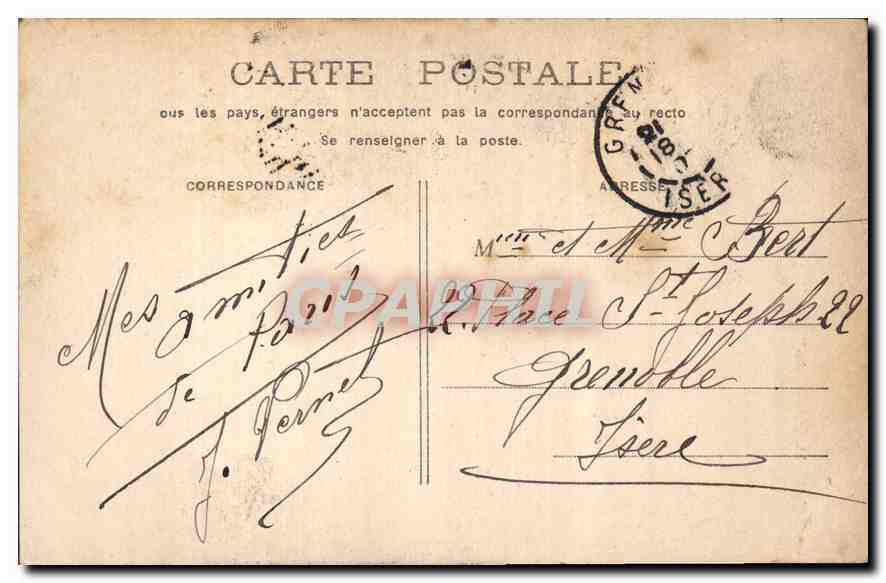 CARTE POSTALE
ous les pays, étrangers n'acceptent pas la correspondance au recto
Se renseigner à la poste.
CORRESPONDANCE
ADRESSE
GREN
ISER
Mes amitiés
de Paris
J. Pernet
et Mme Bert
Place St Joseph 22
Grenoble
Isère
CPAPHIL